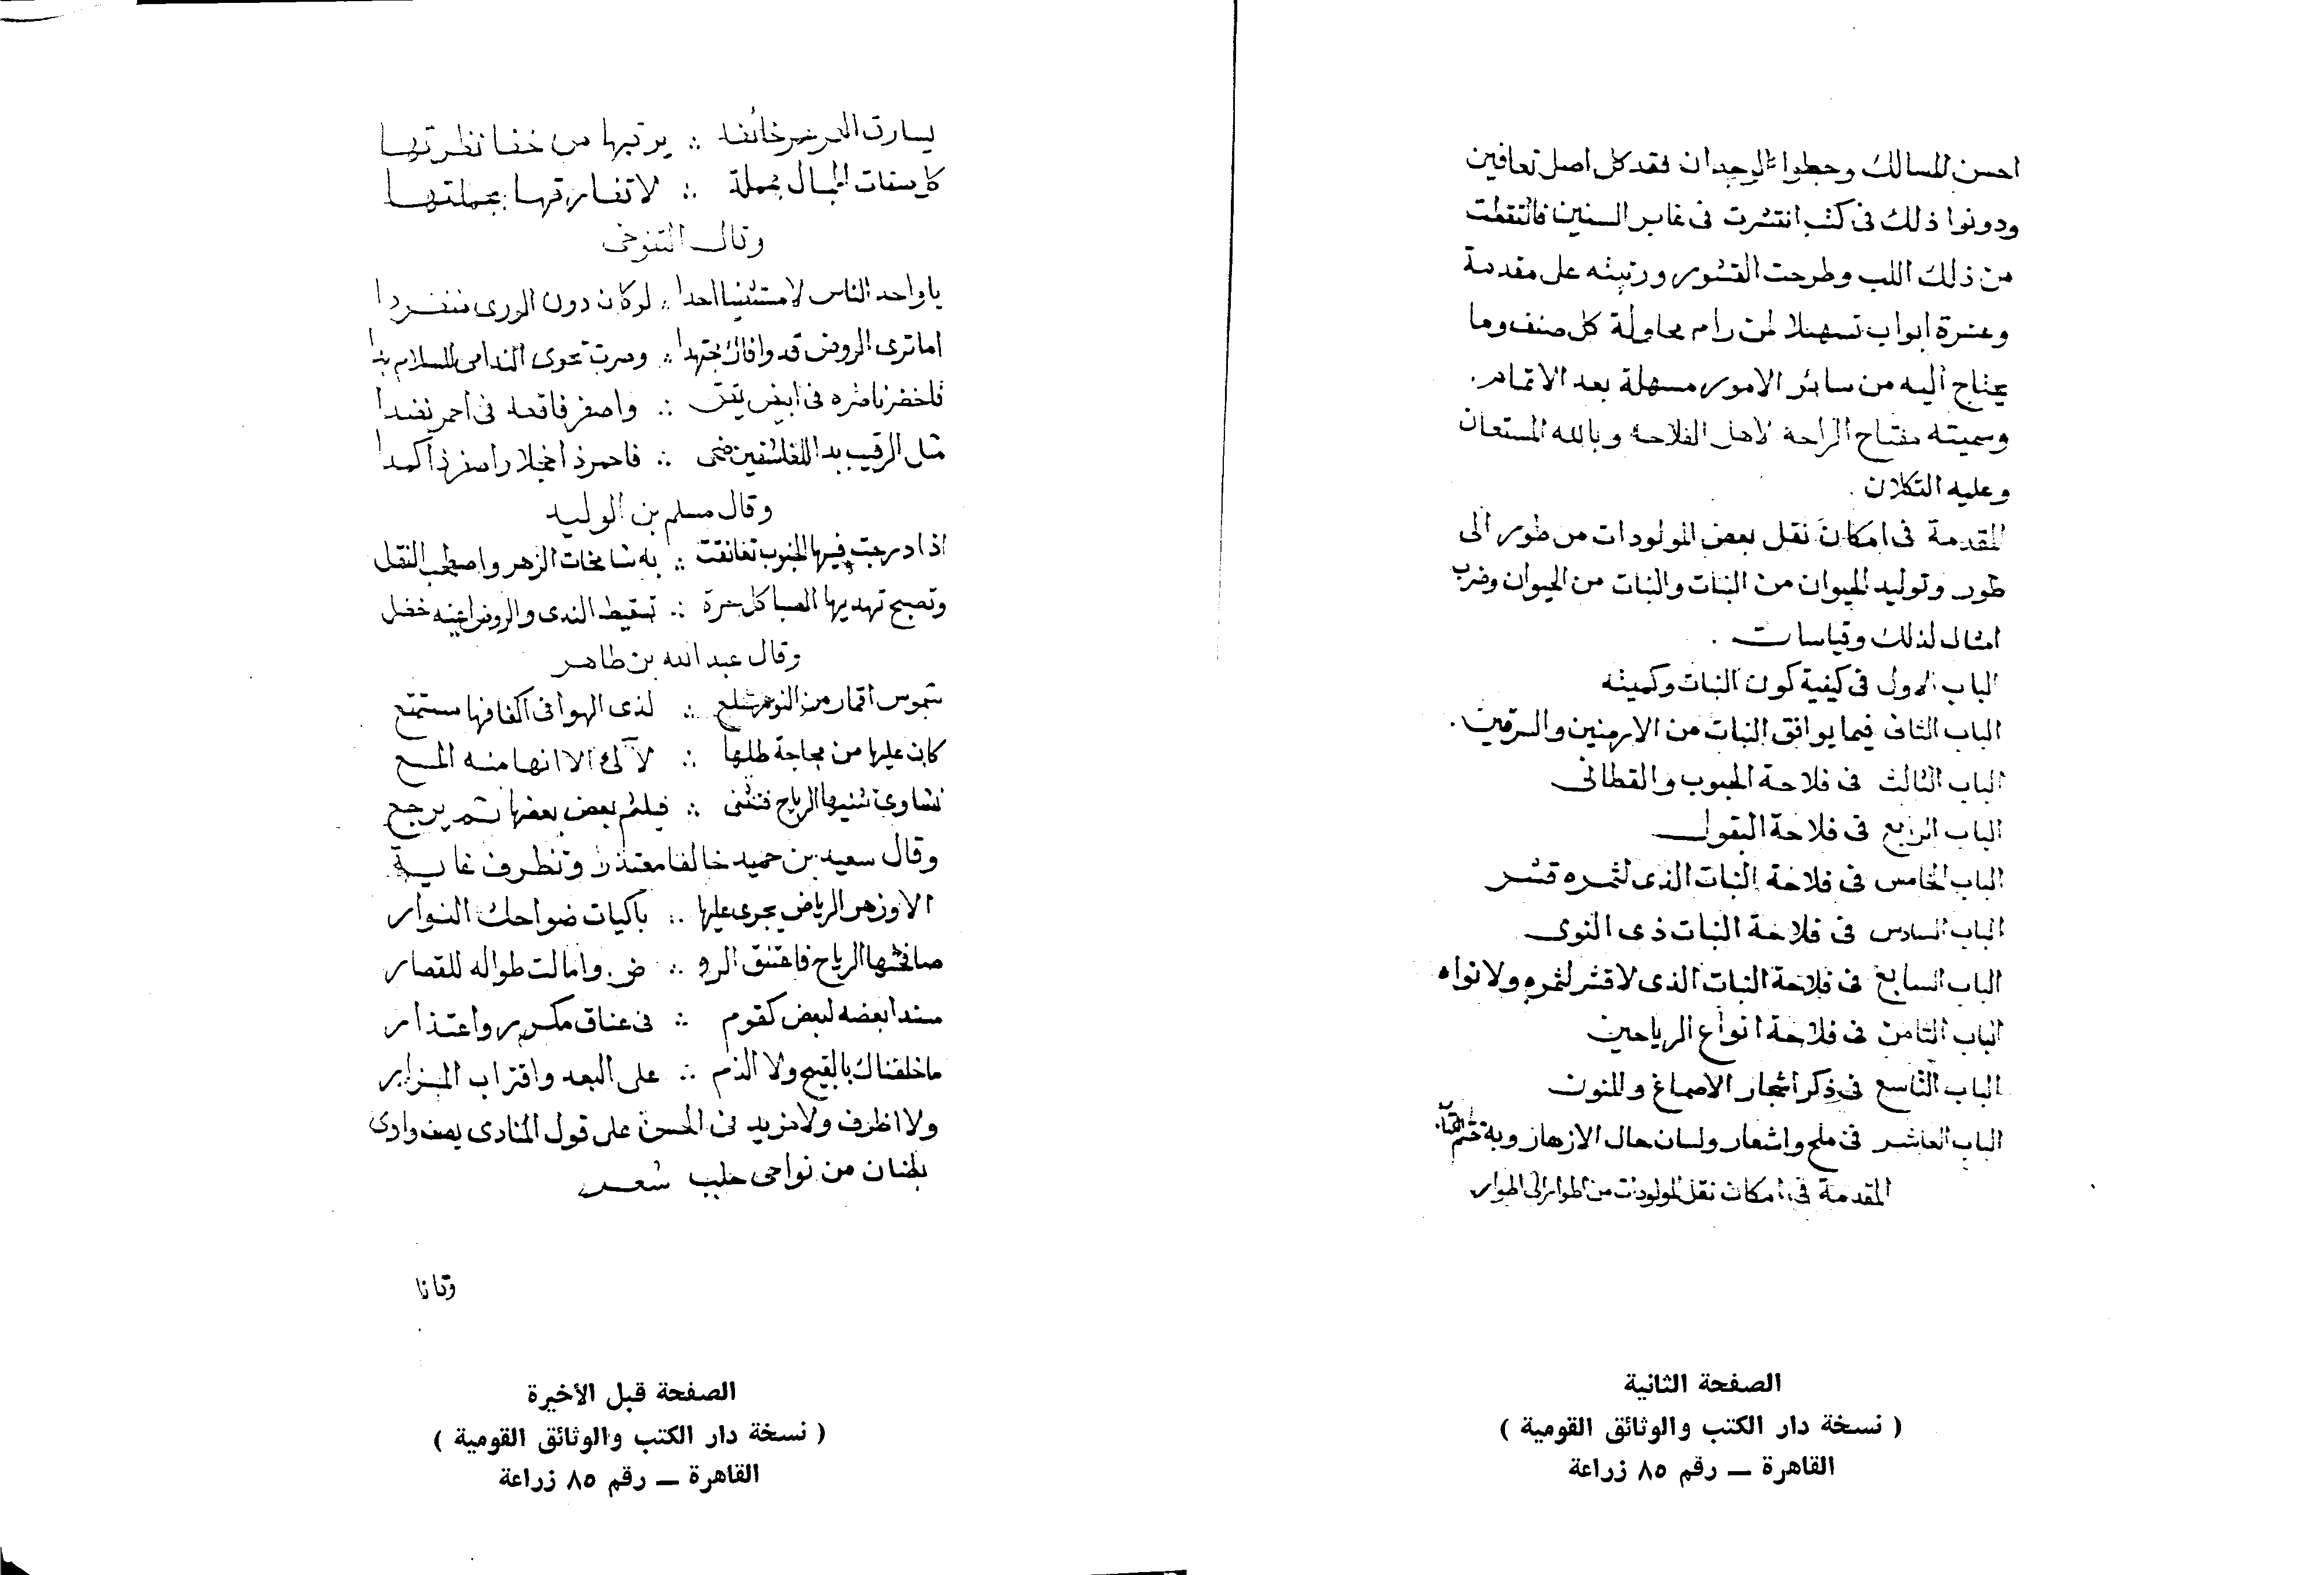 احسن المسالك وحطوا الوجدان فقد كل اصل تعافين
ودونوا ذلك فى كتب انتشرت فى غابر السنين فالتقطت
من ذلك اللب وطرحت القشور ورتبته على مقدمة
وعشرة ابواب تسهيلا لمن رام محاولة كل صنف وما
يحتاج اليه من سائر الامور مسهلة بعد الاتمام.
وسميته مفتاح الراحة لاهل الفلاحة وبالله المستعان
وعليه التكلان .
المقدمة فى امكان نقل بعض المولودات من طور الى
طور وتوليد الحيوان من النبات والنبات من الحيوان وضرب
امثال لذلك وقياسات .
الباب الاول فى كيفية كون النبات وكميته
الباب الثانى فيما يوافق النبات من الارضين والسرقين .
الباب الثالث فى فلاحة الحبوب والقطانى
الباب الرابع فى فلاحة البقول
الباب الخامس فى فلاحة النبات الذى لثمره قشر
الباب السادس فى فلاحة النبات ذى النوى
الباب السابع فى فلاحة النبات الذى لا قشر لثمره ولا نواه
الباب الثامن فى فلاحة انواع الرياحين
الباب التاسع فى ذكر اشجار الاصماغ والمنون
الباب العاشر فى ملح واشعار ولسان حال الازهار وبه ختم الكتاب
المقدمة فى امكان نقل المولودات من اطوار الى اطوار
الصفحة الثانية
( نسخة دار الكتب والوثائق القومية )
القاهرة — رقم ٨٥ زراعة
يسارق خائف ∴ يرتبها من خفا نظرتها
كل صفات الجمال مجملة ∴ لا تفارقها بجملتها
وقال التنوخى
يا واحد الناس لا مستثنيا احدا ∴ لو كان دون الورى منفردا
اما ترى الروض قد وافاك مجتهدا ∴ ومدت نحوى الندامى للسلام يدا
فاخضر ناضره فى ابيض يقق ∴ واصفر فاقعه فى احمر نضدا
مثل الرقيب بدا للعاشقين ضحى ∴ فاحمر ذا خجلا واصفر ذا كمدا
وقال مسلم بن الوليد
اذا درجت فيها الجنوب تعانقت ∴ به شامخات الزهر واصطحب النقل
وتصبح تهديها الصبا كل حرة ∴ تسقيط الندى والروض اعينه خضل
وقال عبد الله بن طاهر
شموس اقمار من النور طلع ∴ لذى الهوا فى اكنافها مستمتع
كان عليها من مجاجة طلها ∴ لآلئ الا انها منه المع
نشاوى تثنيها الرياح فتنثنى ∴ فيلثم بعض بعضها ثم يرجع
وقال سعيد بن حميد خالفا معتذرا وتظرف غاية
الا وزهر الرياض يجرى عليها ∴ باكيات ضواحك النوار
صافحتها الرياح فاعتنق الرو ∴ ض وامالت طواله للقصار
مسندا بعضه لبعض كقوم ∴ فى عناق مكرر واعتذار
ما خلقناك بالقبيح ولا الذم ∴ على البعد واقتراب المزار
ولا اظرف ولا مزيد فى الحسن على قول المنادى يصف وادى
بطنان من نواحى حلب شعر
وقانا
الصفحة قبل الأخيرة
( نسخة دار الكتب والوثائق القومية )
القاهرة — رقم ٨٥ زراعة